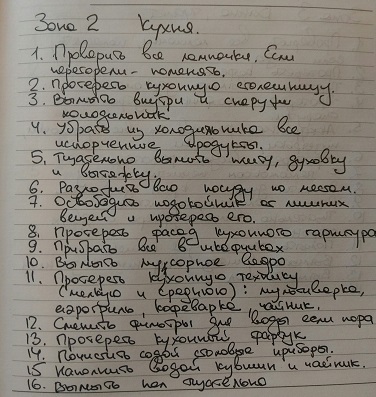 Зона 2 Кухня.
1. Проверить все лампочки. Если
перегорели - поменять.
2. Протереть кухонную столешницу.
3. Вымыть внутри и снаружи
холодильник
4. Убрать из холодильника все
испорченные продукты.
5. Тщательно вымыть плиту, духовку
и вытяжку.
6. Разложить всю посуду по местам.
7. Освободить подоконник от лишних
вещей и протереть его.
8. Протереть фасад кухонного гарнитура
9. Прибрать все в шкафчиках
10. Вымыть мусорное ведро
11. Протереть кухонную технику
(мелкую и среднюю): мультиварка,
аэрогриль, кофеварка, чайник.
12. Сменить фильтры для воды если пора
13. Протереть кухонный фартук
14. Почистить содой столовые приборы.
15 Наполнить водой кувшин и чайник.
16. Вымыть пол тщательно